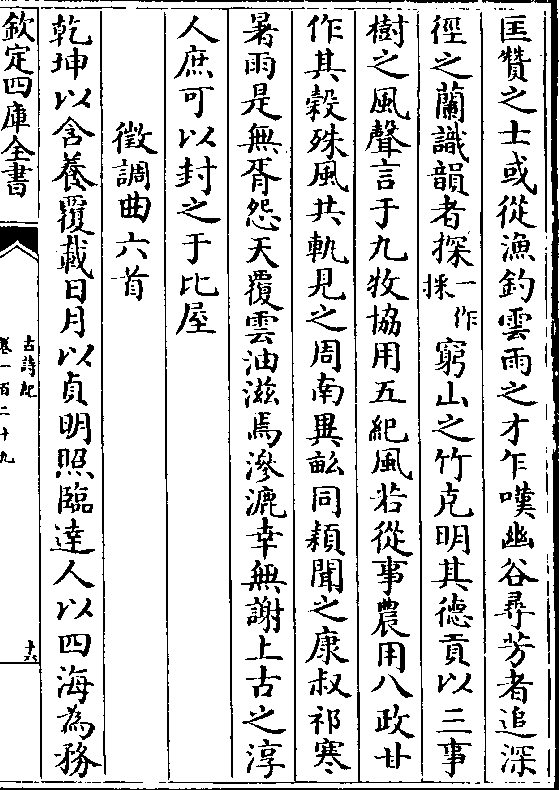 匡贊之士或從漁釣雲雨之才乍嘆幽谷尋芳者追深
徑之蘭識韻者探一作採窮山之竹克明其德貢以三事
樹之風聲言于九牧協用五紀風若從事農用八政甘
作其穀殊風共軌見之周南異畝同穎聞之康叔祁寒
暑雨是無胥怨天覆雲油滋焉滲漉幸無謝上古之淳
人庶可以封之于比屋
徵調曲六首
乾坤以含養覆載日月以貞明照臨達人以四海為務
欽定四庫全書
古詩紀
卷一百二十九
十六